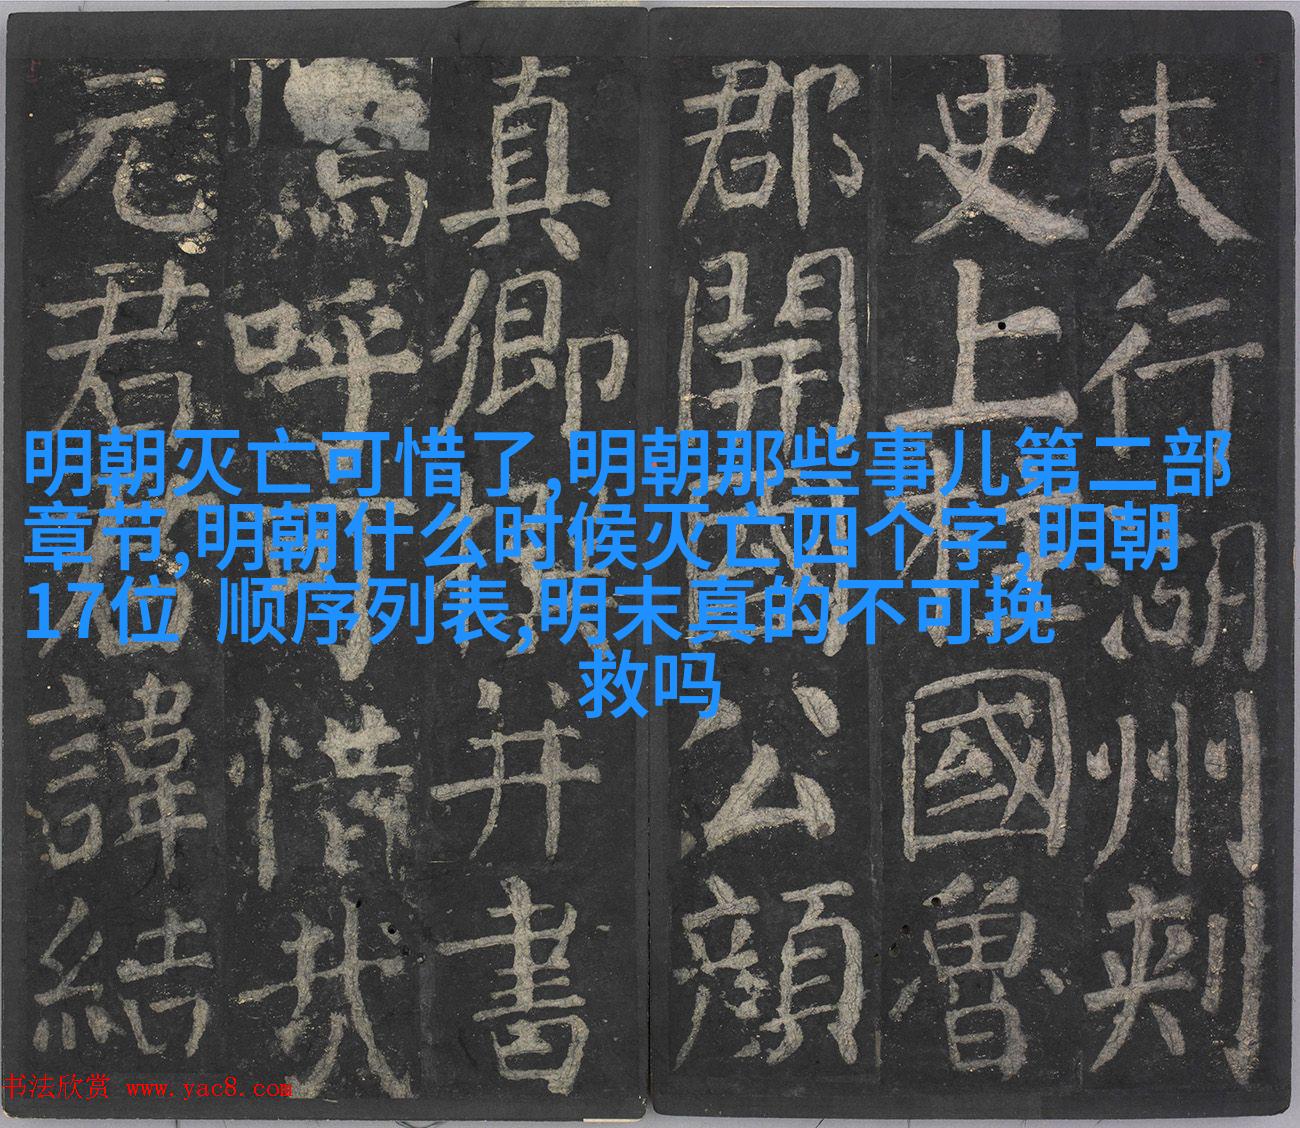 夫行湖州刺
史上柱國魯
郡開國公顏
真卿撰并書
嗚呼可惜哉
元君君諱結
明朝灭亡可惜了,明朝那些事儿第二部
章节,明朝什么时候灭亡四个字,明朝
17位  顺序列表,明末真的不可挽
救吗
书法欣赏 www.yac8.com